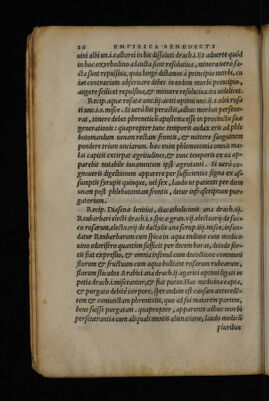 26 EMPIRICA BENEDICTI
uini albi un. i. castorei in his dissoluti drach. i. Et aduerte quòd
in hoc oxyrhodino adaucta sunt resolutiua, minora uerò fa-
cta sunt repulsiua, quia longè distamus à principio morbi, cu
ius contrarium obseruare debes in eodem morbi principio,
augere scilicet repulsiua, & minuere resolutiua ina uidelicet.
Recip. aquæ rosatæ unc. iij. aceti optimi unc. i. s. olei rosa
ti unc. i. s. misce. Si uerò his peractis, adhuc morbus perseue-
rat, timere debes phreneticũ apostema esse in procinctu suæ
generationis: quapropter tunc temporis audax eris ad phle
botomandum uenam rectam frontis, & mittere sanguinem
pondere trium unciarum. hac enim phlebotomia omnis ma-
lus capitis extirpat ægritudines, & tunc temporis ex ea ap-
parebit notabile iuuamentum ipsi ægrotanti. Si uerò co-
gnoueris digestionem apparere per sufficientia signa ex as-
sumptis syrupis quinque, uel sex, laudo ut patienti per diem
unam post phlebotomiam frontis, detur infrascriptum pur-
gatorium.
Recip. Diasenæ lenitiui, diacatholiconis ana drach. iij.
Reubarbari electi drach. i. s. spicæ gran. vij. electuarij de suc-
co rosarum, electuarij de dactylis ana scrup. iiij. misce, infun-
datur Reubarbarum cum spica in aqua endiuiæ cum modico
uino odorifero quantum sufficit per decem horas, deinde for-
tis fiat expressio, & omnia insimul cum decoctione communi
florum & fructuum cum aqua bullitæ rosarum rubearum,
florum sticados Arabici ana drach. ij. agarici optimi ligati in
petia drach. i. misceantur, & fiat potus. Hac medicina capta,
& purgato debitè corpore, sperandum est causam anteceden-
tem & coniunctam phrenitidis, quo ad sui maiorem partem,
bene fuisse purgatam. quapropter, apparente adhuc morbi
perseuerantia cum aliquali mentis alienatione, laudo medicũ
pluribus